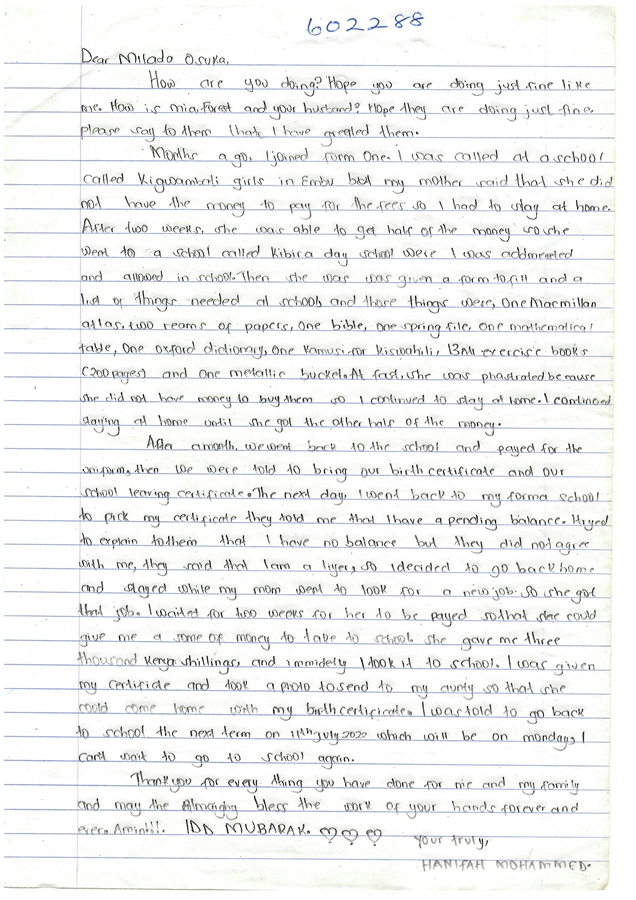 602288
Dear Milado Osuka,
How are you doing? Hope you are doing just fine like
me. How is mia, Forest and your husband? Hope they are doing just fine.
please say to them that I have greated them.
Months a go, I joined form One. I was called at a school
called Kigwambali girls in Embu but my mother said that she did
not have the money to pay for the fees so I had to stay at home.
After two weeks, she was able to get half of the money so she
went to a school called Kibira day school were I was addmented
and allowed in school. Then she was was given a form to fill and a
list of things needed at school, and those things were, One Macmillan
atlas, two reams of papers, One bible, one spring file, One mathematical
table, One oxford dictionary, One Kamusi for Kiswahili, 13 A4 exercise books
(200 pages) and One metallic bucket. At fast, she was phastrated because
she did not have money to buy them so I continued to stay at home. I continied
staying at home until she got the other half of the money.
After a month, we went back to the school and payed for the
uniform, then we were told to bring our birth certificate and our
school leaving certificate. The next day, I went back to my forma school
to pick my certificate they told me that I have a pending balance. I tryed
to explain to them that I have no balance but they did not agree
with me, they said that I am a lyer, so I decided to go back home
and stayed while my mom went to look for a new job. So she got
that job. I waited for two weeks for her to be payed so that she could
give me a some of money to take to school. she gave me three
thousand Kenya shillings, and immidely I took it to school. I was given
my certificte and took a photo to send to my aunty so that she
could come home with my birth certificate. I was told to go back
to school the next term on 11th July 2022 which will be on monday, I
can't wait to go to school again.
Thank you for every thing you have done for me and my family
and may the Almighy bless the work of your hands forever and
ever. Amin!!!. IDD MUBARAK. ♡♡♡
Your truly,
HANIFAH MOHAMMED.